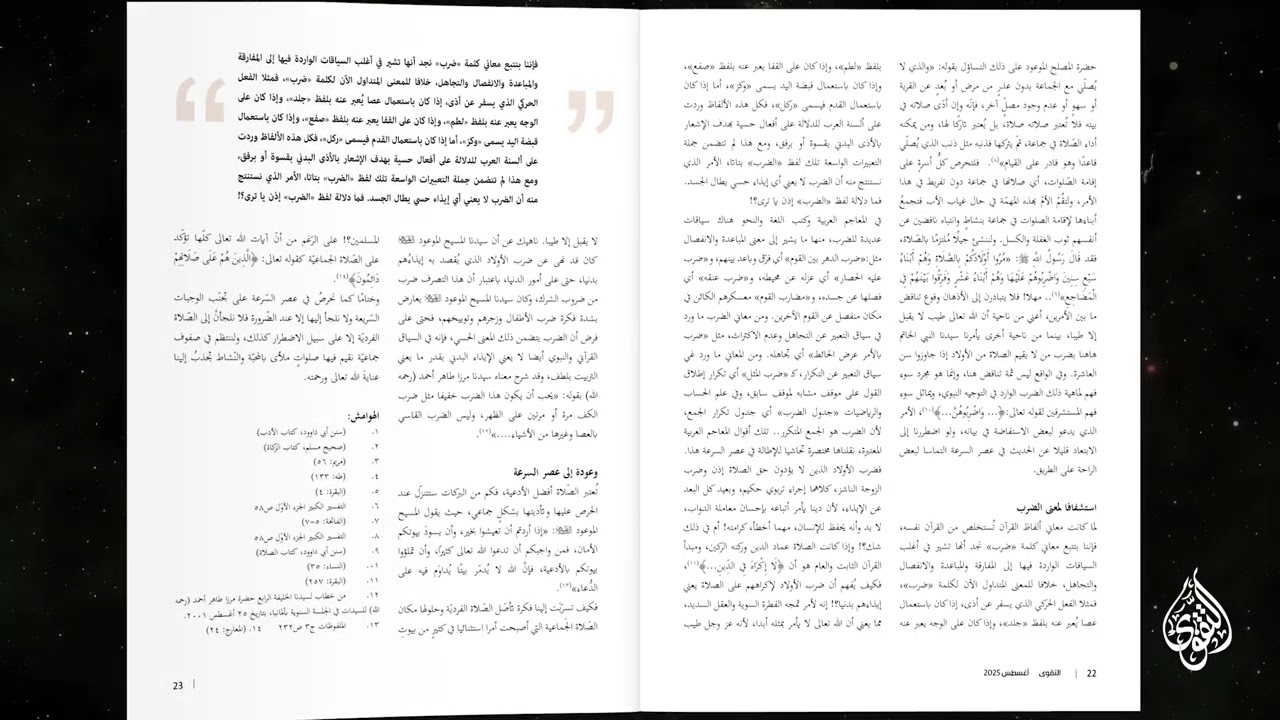 حضرة المصلح الموعود على ذلك التساؤل بقوله: «والذي لا
يُصلّي مع الجماعة بدون عذرٍ من مرض أو بُعد عن القرية
أو سهوٍ أو عدم وجود مصلٍّ آخر، فإنّه وإن أدّى صلاته في
بيته فلاَ تُعتبر صلاته صلاةً، بل يُعتبر تاركًا لها، ومن يمكنه
أداء الصّلاة في جماعة، ثم يتركها فذنبه مثل ذنب الذي يُصلّي
قاعدًا وهو قادر على القيام»(٨). فلتحرص كلُّ أسرةٍ على
إقامة الصّلوات، أي صلاتها في جماعة دون تفريط في هذا
الأمر، ولتقُم الأمّ بهذه المهمّة في حال غياب الأب فتجمعُ
أبناءها لإقامة الصلوات في جماعة بنشاطٍ وانتباه نافضين عن
أنفسهم ثوب الغفلة والكسل. ولننشئ جيلًا مُلتزمًا بالصّلاة،
فقد قَالَ رَسُولُ اللَّهِ ﷺ: «مُرُوا أَوْلَادَكُمْ بِالصَّلَاةِ وَهُمْ أَبْنَاءُ
سَبْعِ سِنِينَ وَاضْرِبُوهُمْ عَلَيْهَا وَهُمْ أَبْنَاءُ عَشْرٍ وَفَرِّقُوا بَيْنَهُمْ فِي
الْمَضَاجِعِ»(٩).. مهلا! فلا يتبادرن إلى الأذهان وقوع تناقض
ما بين الأمرين، أعني من ناحية أن الله تعالى طيب لا يقبل
إلا طيبا، بينما من ناحية أخرى يأمرنا سيدنا النبي الخاتم
هاهنا بضرب من لا يقيم الصلاة من الأولاد إذا جاوزوا سن
العاشرة. وفي الواقع ليس ثمة تناقض هنا، وإنما هو مجرد سوء
فهم لماهية ذلك الضرب الوارد في التوجيه النبوي، ويماثل سوء
فهم المستشرقين لقوله تعالى:﴿... وَاضْرِبُوهُنَّ...﴾(١٠)، الأمر
الذي يدعو لبعض الاستفاضة في بيانه، ولو اضطررنا إلى
الابتعاد قليلا عن الحديث في عصر السرعة التماسا لبعض
الراحة على الطريق.
استشفافا لمعنى الضرب
لما كانت معاني ألفاظ القرآن تُستخلص من القرآن نفسه،
فإننا بتتبع معاني كلمة «ضرب» نجد أنها تشير في أغلب
السياقات الواردة فيها إلى المفارقة والمباعدة والانفصال
والتجاهل، خلافا للمعنى المتداول الآن لكلمة «ضرب»،
فمثلا الفعل الحركي الذي يسفر عن أذى، إذا كان باستعمال
عصا يُعبر عنه بلفظ «جلد»، وإذا كان على الوجه يعبر عنه
بلفظ «لطم»، وإذا كان على القفا يعبر عنه بلفظ «صفع»،
وإذا كان باستعمال قبضة اليد يسمى «وكز»، أما إذا كان
باستعمال القدم فيسمى «ركل»، فكل هذه الألفاظ وردت
على ألسنة العرب للدلالة على أفعال حسية بهدف الإشعار
بالأذى البدني بقسوة أو برفق، ومع هذا لم تتضمن جملة
التعبيرات الواسعة تلك لفظ «الضرب» بتاتا، الأمر الذي
نستنتج منه أن الضرب لا يعني أي إيذاء حسي يطال الجسد.
فما دلالة لفظ «الضرب» إذن يا ترى؟!
في المعاجم العربية وكتب اللغة والنحو هناك سياقات
عديدة للضرب، منها ما يشير إلى معنى المباعدة والانفصال
مثل:«ضرب الدهر بين القوم» أي فرّق وباعد بينهم، و«ضرب
عليه الحصار» أي عزله عن محيطه، و«ضرب عنقه» أي
فصلها عن جسده، و«مضارب القوم» معسكرهم الكائن في
مكان منفصل عن القوم الآخرين. ومن معاني الضرب ما ورد
في سياق التعبير عن التجاهل وعدم الاكتراث، مثل «ضرب
بالأمر عرض الحائط» أي تجاهله. ومن المعاني ما ورد في
سياق التعبير عن التكرار، كـ «ضرب المثل» أي تكرار إطلاق
القول على موقف مشابه لموقف سابق، وفي علم الحساب
والرياضيات «جدول الضرب» أي جدول تكرار الجمع،
لأن الضرب هو الجمع المتكرر.. تلك أقوال المعاجم العربية
المعتبرة، نقلناها مختصرة تحاشيا للإطالة في عصر السرعة هذا.
فضرب الأولاد الذين لا يؤدون حق الصلاة إذن وضرب
الزوجة الناشز، كلاهما إجراء تربوي حكيم، وبعيد كل البعد
عن الإيذاء، لأن دينا يأمر أتباعه بإحسان معاملة الدواب،
لا بد وأنه يحفظ للإنسان، مهما أخطأ، كرامته! أم في ذلك
شك؟! وإذا كانت الصلاة عماد الدين وركنه الركين، ومبدأ
القرآن الثابت والعام هو أن ﴿لَا إِكْرَاهَ فِي الدِّينِ...﴾(١١)،
فكيف يُفهم أن ضرب الأولاد لإكراههم على الصلاة يعني
إيذاءهم بدنيا؟!! إنه لأمر تمجه الفطرة السوية والعقل السديد،
مما يعني أن الله تعالى لا يأمر بمثله أبدا، لأنه عز وجل طيب
22 | التقوى أغسطس 2025
فإننا بتتبع معاني كلمة «ضرب» نجد أنها تشير في أغلب السياقات الواردة فيها إلى المفارقة
والمباعدة والانفصال والتجاهل، خلافا للمعنى المتداول الآن لكلمة «ضرب»، فمثلا الفعل
الحركي الذي يسفر عن أذى، إذا كان باستعمال عصا يُعبر عنه بلفظ «جلد»، وإذا كان على
الوجه يعبر عنه بلفظ «لطم»، وإذا كان على القفا يعبر عنه بلفظ «صفع»، وإذا كان باستعمال
قبضة اليد يسمى «وكز»، أما إذا كان باستعمال القدم فيسمى «ركل»، فكل هذه الألفاظ وردت
على ألسنة العرب للدلالة على أفعال حسية بهدف الإشعار بالأذى البدني بقسوة أو برفق،
ومع هذا لم تتضمن جملة التعبيرات الواسعة تلك لفظ «الضرب» بتاتا، الأمر الذي نستنتج
منه أن الضرب لا يعني أي إيذاء حسي يطال الجسد. فما دلالة لفظ «الضرب» إذن يا ترى؟!
لا يقبل إلا طيبا. ناهيك عن أن سيدنا المسيح الموعود
كان قد نهى عن ضرب الأولاد الذي يُقصد به إيذاؤهم
بدنيا، حتى على أمور الدنيا، باعتبار أن هذا التصرف ضرب
من ضروب الشرك، وكان سيدنا المسيح الموعود يعارض
بشدة فكرة ضرب الأطفال وزجرهم وتوبيخهم، فحتى على
فرض أن الضرب يتضمن ذلك المعنى الحسي، فإنه في السياق
القرآني والنبوي أيضا لا يعني الإيذاء البدني بقدر ما يعني
التربيت بلطف، وقد شرح معناه سيدنا مرزا طاهر أحمد (رحمه
الله) بقوله: «يجب أن يكون هذا الضرب خفيفا مثل ضرب
الكف مرة أو مرتين على الظهر، وليس الضرب القاسي
بالعصا وغيرها من الأشياء....»(١٢).
وعودة إلى عصر السرعة
تُعتبر الصّلاة أفضل الأدعية، فكم من البركات ستتنزّل عند
الحرص عليها وتأديتها بشكلٍ جماعي، حيث يقول المسيح
الموعود: «إذا أردتم أن تعيشوا بخير، وأن يسودَ بيوتكم
الأمان، فمن واجبكم أن تدعوا الله تعالى كثيرًا، وأن تملؤوا
بيوتكم بالأدعية، فإنَّ الله لا يُدمّر بيتًا يُداوَم فيه على
الدُّعاء»(١٣).
فكيف تسرّبَت إلينا فكرة تأصّل الصّلاة الفرديّة وحلولها مكان
الصّلاة الجماعية التي أصبحت أمرا استثنائيا في كثيرٍ من بيوتِ
المسلمين؟! على الرّغم من أنّ آيات الله تعالى كلّها تؤكّد
على الصّلاة الجماعيّة كقوله تعالى: ﴿الَّذِينَ هُمْ عَلَى صَلَاتِهِمْ
دَائِمُونَ﴾(١٤).
وختامًا كما نحرصُ في عصر السّرعة على تجنّب الوجبات
السّريعة ولا نلجأ إليها إلا عند الضّرورة فلا نلجأنَّ إلى الصّلاة
الفرديّة إلا على سبيل الاضطرار كذلك، ولننتظم في صفوف
جماعيّة نقيم فيها صلواتٍ ملأى بالمحبّة والنّشاط تجذبُ إلينا
عنايةَ الله تعالى ورحمته.
الهوامش:
١. (سنن أبي داوود، كتاب الأدب)
٢. (صحيح مسلم، كتاب الزكاة)
٣. (مريم: ٥٦)
٤. (طه: ١٣٣)
٥. (البقرة: ٤)
٦. التفسير الكبير الجزء الأوّل ص٥٨
٧. (الفاتحة: ٥-٧)
٨. التفسير الكبير الجزء الأوّل ص٥٨
٩. (سنن أبي داوود، كتاب الصلاة)
٠١. (النساء: ٣٥)
١١. (البقرة: ٢٥٧)
١٢. من خطاب لسيدنا الخليفة الرابع حضرة مرزا طاهر أحمد (رحمه
الله) للسيدات في الجلسة السنوية بألمانيا، بتاريخ ٢٥ أغسطس ٢٠٠١.
١٣. الملفوظات ج٣ ص٢٣٢ ١٤. (المعارج: ٢٤)
23 |
التقوى